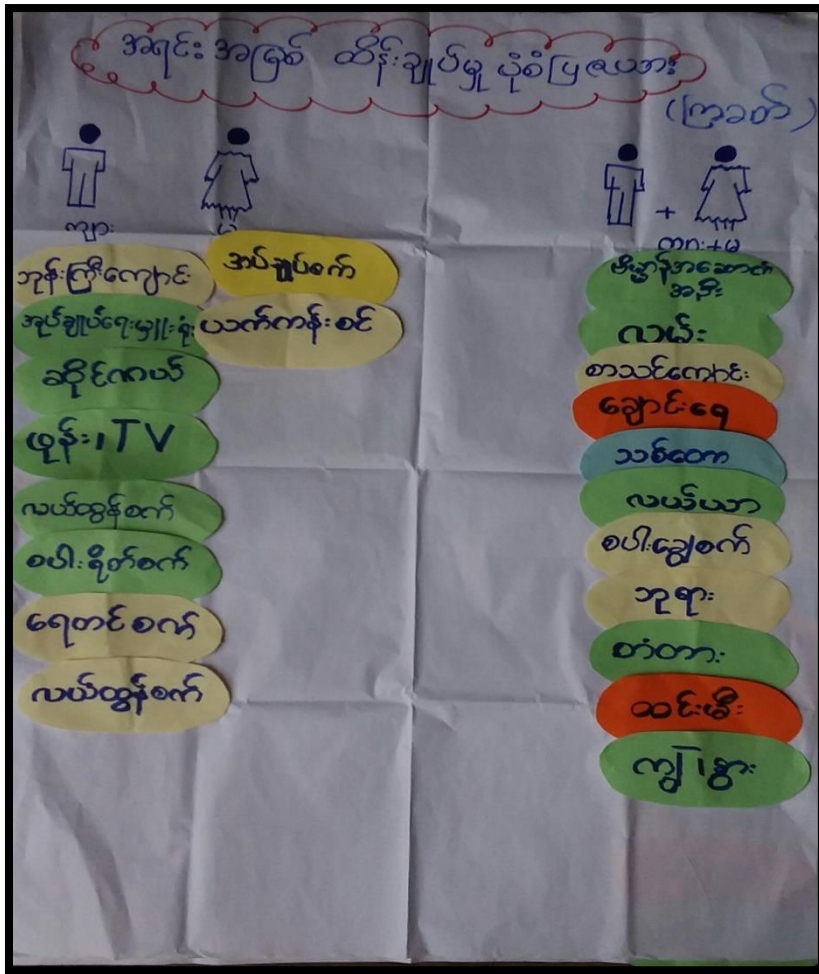 အရင်းအမြစ် ထိန်းချုပ်မှု ပုံစံပြဇယား
(ကြခတ်)
ကျား
မ
ကျား+မ
ဘုန်းကြီးကျောင်း
အုပ်ချုပ်ရေးမှူးရုံး
ဆိုင်ကယ်
ဖုန်း၊ TV
လယ်ထွန်စက်
စပါးရိတ်စက်
ရေတင်စက်
လယ်ထွန်စက်
အပ်ချုပ်စက်
ယက်ကန်းစင်
အဦး
လမ်း
စာသင်ကျောင်း
ချောင်းရေ
သစ်တော
လယ်ယာ
စပါးချွေစက်
ဘုရား
တံတား
ထင်းမီး
ကျွဲ၊ နွား